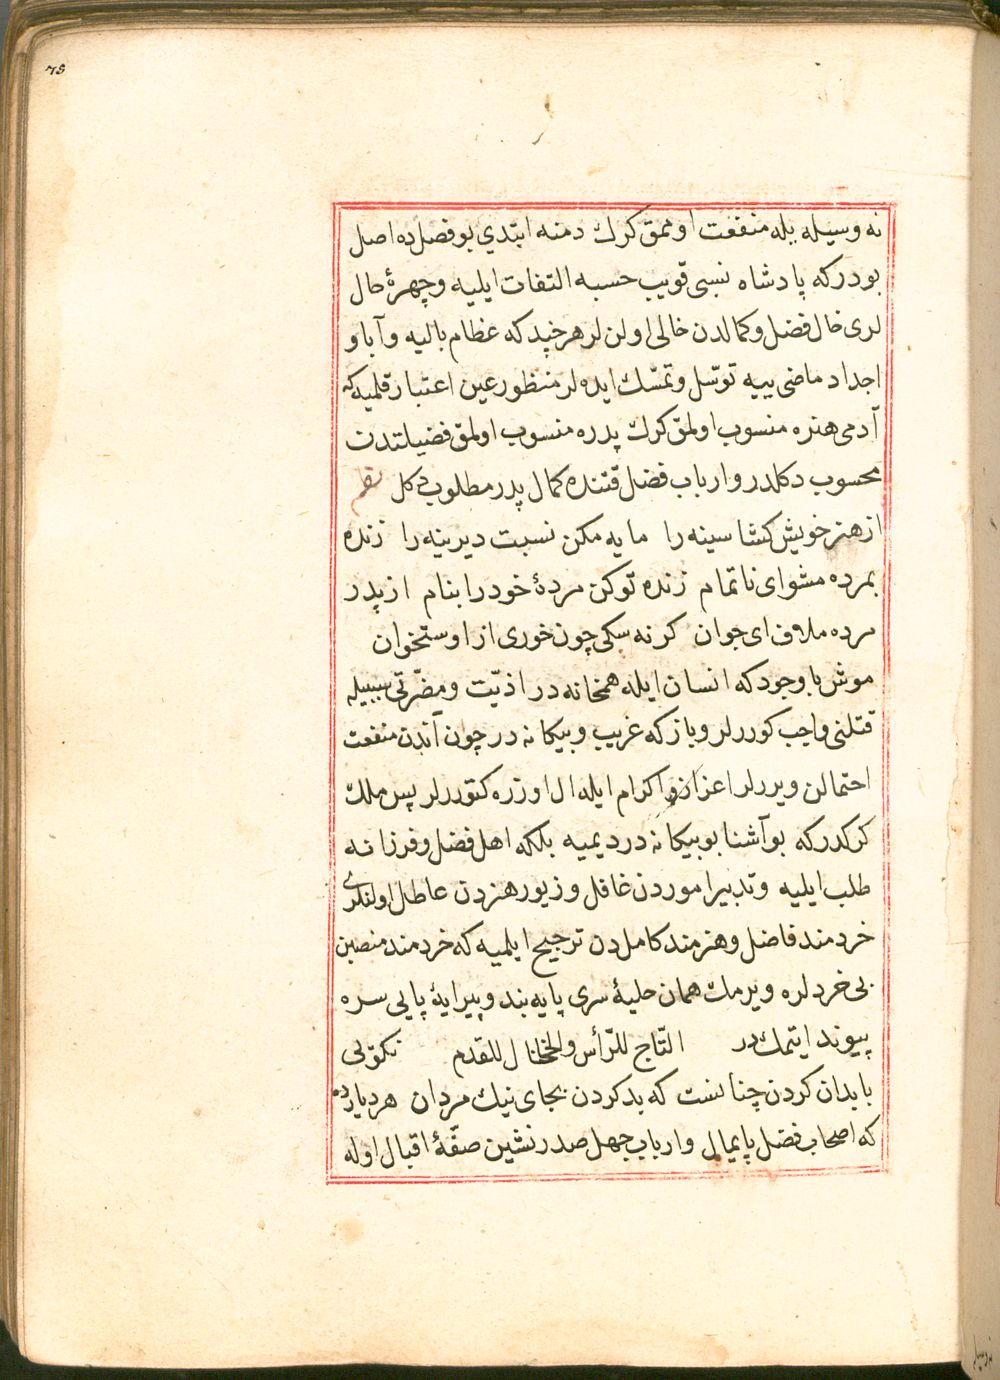 نه وسیله یله منفعت اومق كرك دمنه ابتدي بو فصل ده اصل
بودر كه پادشاه نسبی قویب حسبه التفات ایلیه وچهرۀ حال
لری خال فضل وكمالدن خالی اولن لر هر خپد كه عظام بالیه وآبا و
اجداد ماضی ییه توسّل وتمسّك ایده لر منظور عین اعتبار قلمیه كه
آدمی هنره منسوب اولمق كرك پدره منسوب اولمق فضیلتدن
محسوب دكلدر وارباب فضل قتنده كمال پدر مطلوب دكل نظم
از هنر خویش كشا سینه را مایه مكن نسبت دیرینه را زنده
بمرده مشو ای ناتمام زنده تو كن مردۀ خود را بنام از پدر
مرده ملاف ای جوان كر نه سكی چون خوری از اوستخوان
موش با وجود كه انسان ایله همخانه در اذیّت ومضرّتی سببیله
قتلنی واجب كوررلر وباز كه غریب وبیكانه در چون آندن منفعت
احتمالن ویررلر اعزاز واكرام ایله ال اوزره كتوررلر پس ملك
كركدر كه بو آشنا بو بیكانه در دیمیه بلكه اهل فضل وفرزانه
طلب ایلیه وتدبیر اموردن غافل وزیور هنردن عاطل اولنلری
خردمند فاضل وهنرمند كاملدن ترجیح ایلمیه كه خردمند منصبن
بی خردلره ویرمك همان حلیۀ سری پایه بند وپیرایۀ پایی سره
پیوند ایتمك در التّاج للرّأس والخلخال للقدم نكویی
با بدان كردن چنانست كه بد كردن بجای نیك مردان هر دیارده
كه اصحاب فضل پایمال وارباب جهل صدرنشین صفّۀ اقبال اوله